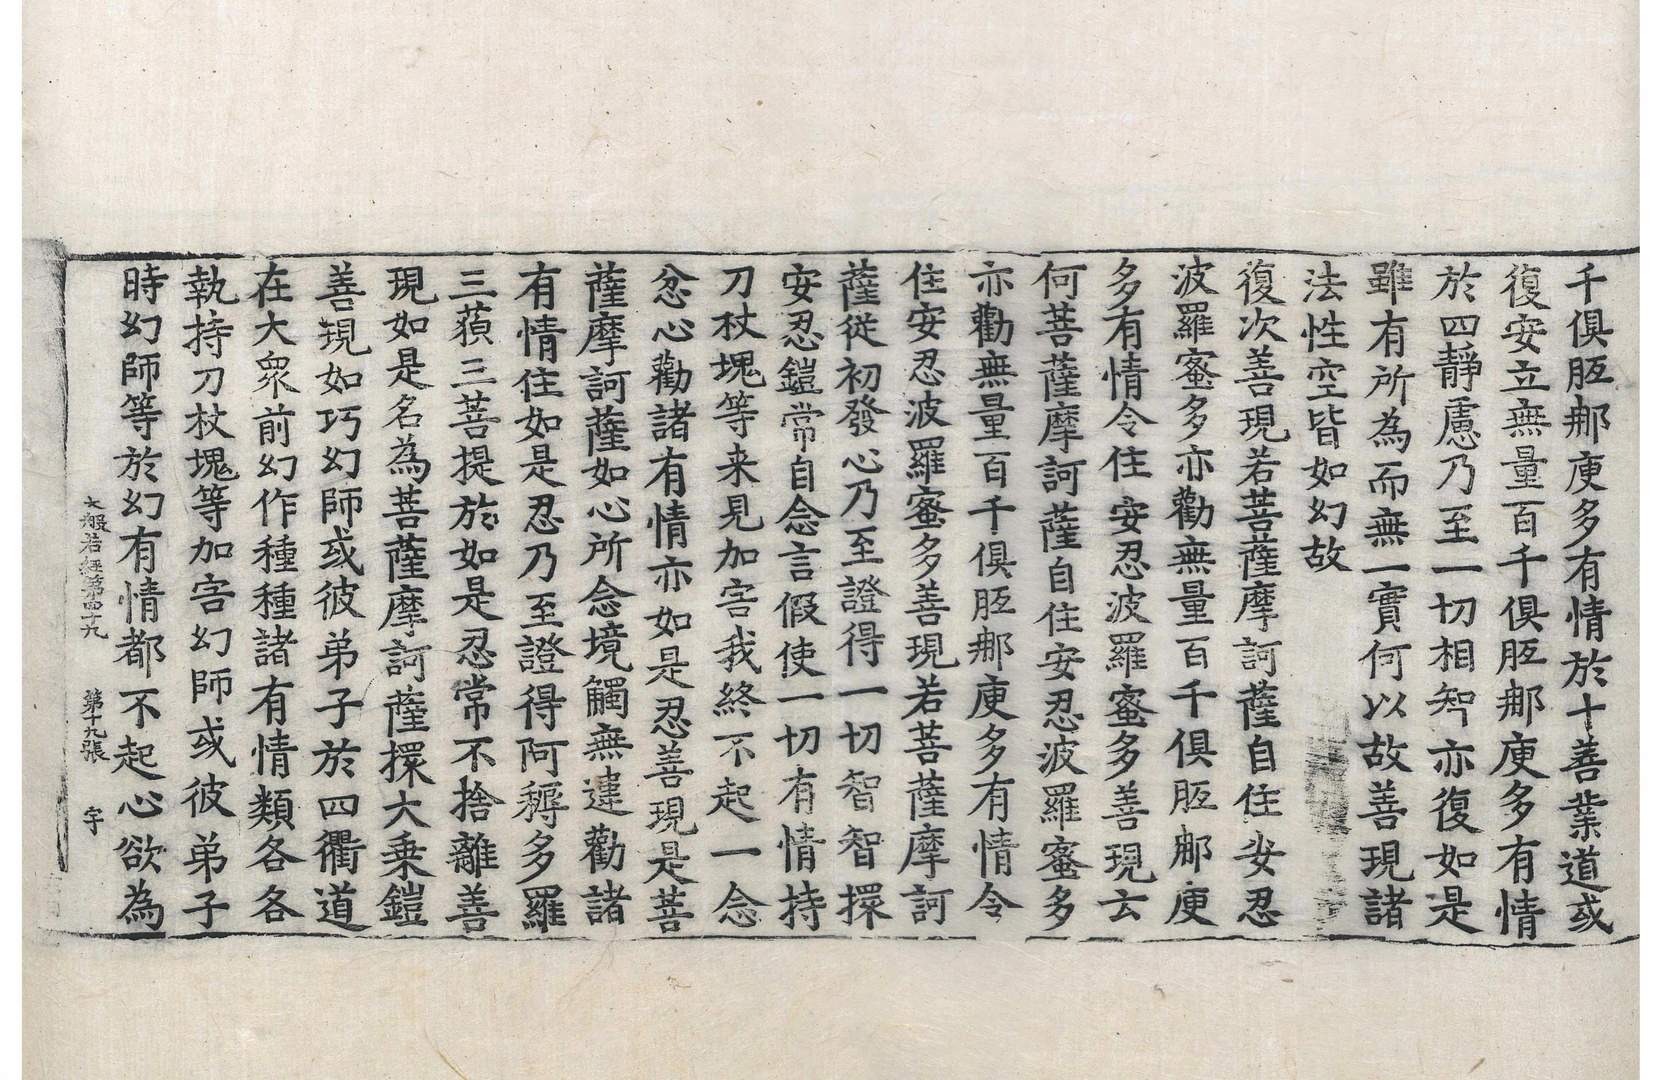 千俱胝那庾多有情於十善業道或
復安立無量百千俱胝那庾多有情
於四靜慮乃至一切相智亦復如是
雖有所為而無一實何以故善現諸
法性空皆如幻故
復次善現若菩薩摩訶薩自住安忍
波羅蜜多亦勸無量百千俱胝那庾
多有情令住安忍波羅蜜多善現云
何菩薩摩訶薩自住安忍波羅蜜多
亦勸無量百千俱胝那庾多有情令
住安忍波羅蜜多善現若菩薩摩訶
薩從初發心乃至證得一切智智擐
安忍鎧常自念言假使一切有情持
刀杖塊等来見加害我終不起一念
忿心勸諸有情亦如是忍善現是菩
薩摩訶薩如心所念境觸無違勸諸
有情住如是忍乃至證得阿耨多羅
三藐三菩提於如是忍常不捨離善
現如是名為菩薩摩訶薩擐大乗鎧
善現如巧幻師或彼弟子於四衢道
在大衆前幻作種種諸有情類各各
執持刀杖塊等加害幻師或彼弟子
時幻師等於幻有情都不起心欲為
大般若經第四十九 第十九張 宇